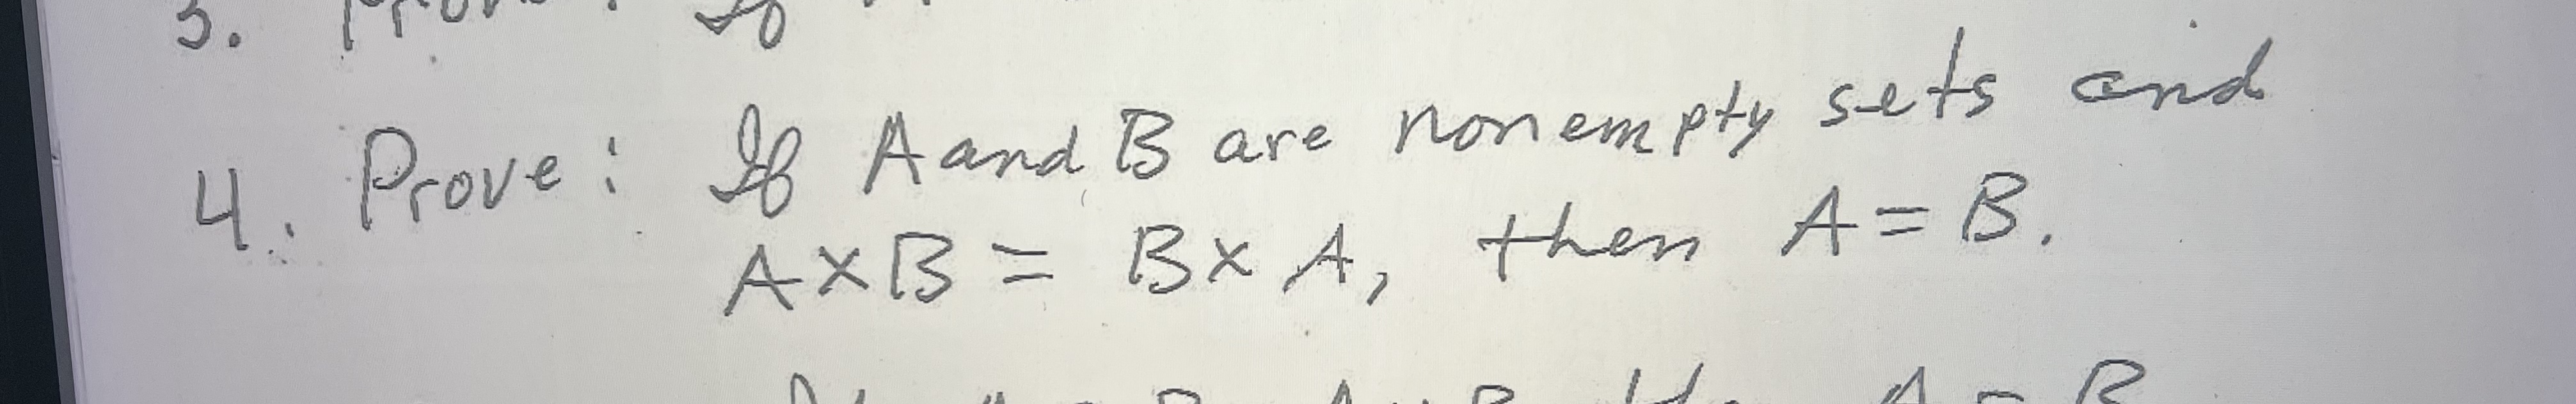 3. Prove: If
4. Prove: If A and B are nonempty sets and
A×B = B× A, then A = B.